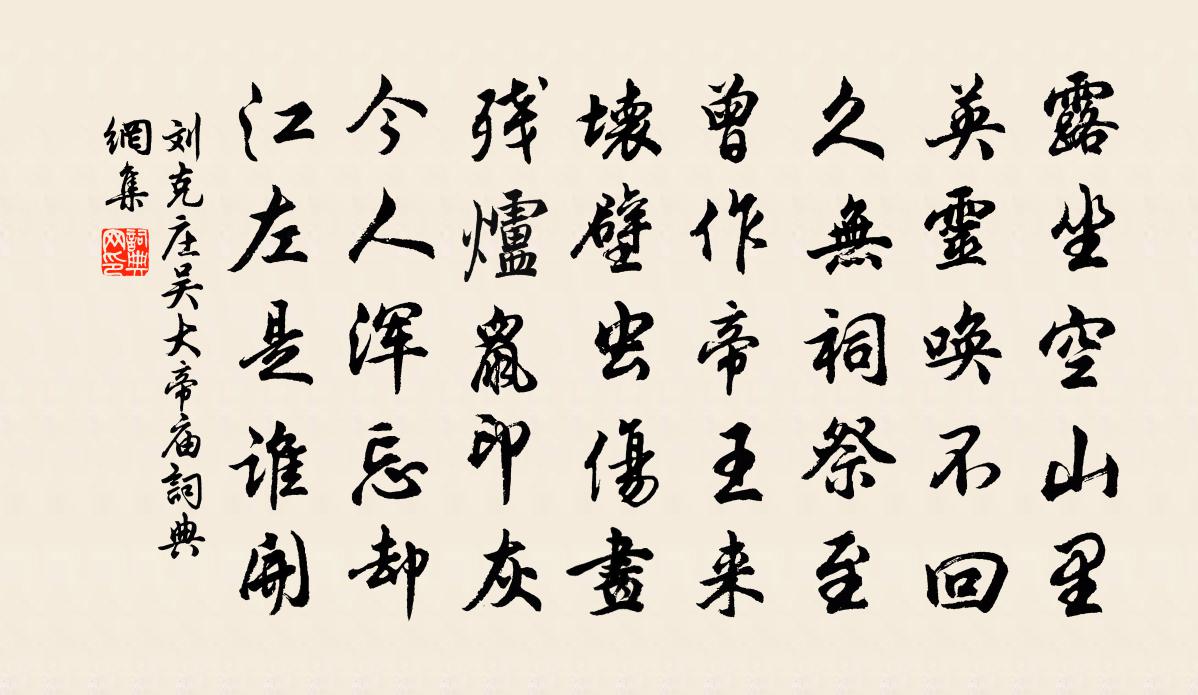 露坐空山里
英靈唤不回
久無祠祭至
曾作帝王来
壊壁虫傷畫
残爐鼠印灰
今人浑忘却
江左是谁開
刘克庄吴大帝庙詞典
網集
詞典
网印